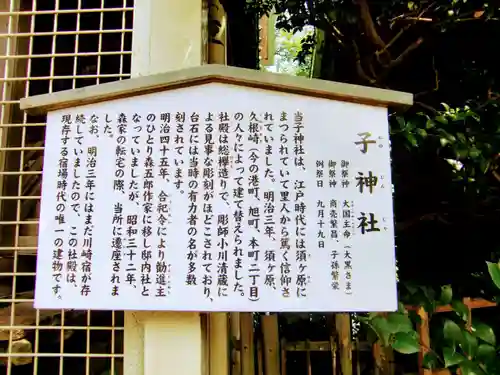 子神社
ねのじんじゃ
御祭神 大国主命(大黒さま)
御祭神 商売繁昌 子孫繁栄
例祭日 九月十九日
当子神社は、江戸時代には須ヶ原に
まつられていて里人から篤く信仰さ
れていました。明治三年、須ヶ原、
久根崎(今の港町、旭町、本町二丁目)
の人々によって建て替えられました。
社殿は総欅造りで、彫師小川清蔵に
よる見事な彫刻がほどこされており、
台石には当時の有力者の名が多数
刻されています。
明治四十五年、合祀令により勧進主
のひとり森五郎作家に移し邸内社と
なっていましたが、昭和三十二年、
森家の転宅の際、当所に遷座されま
した。
なお、明治三年にはまだ川崎宿が存
続していましたので、この社殿は、
現存する宿場時代の唯一の建物です。